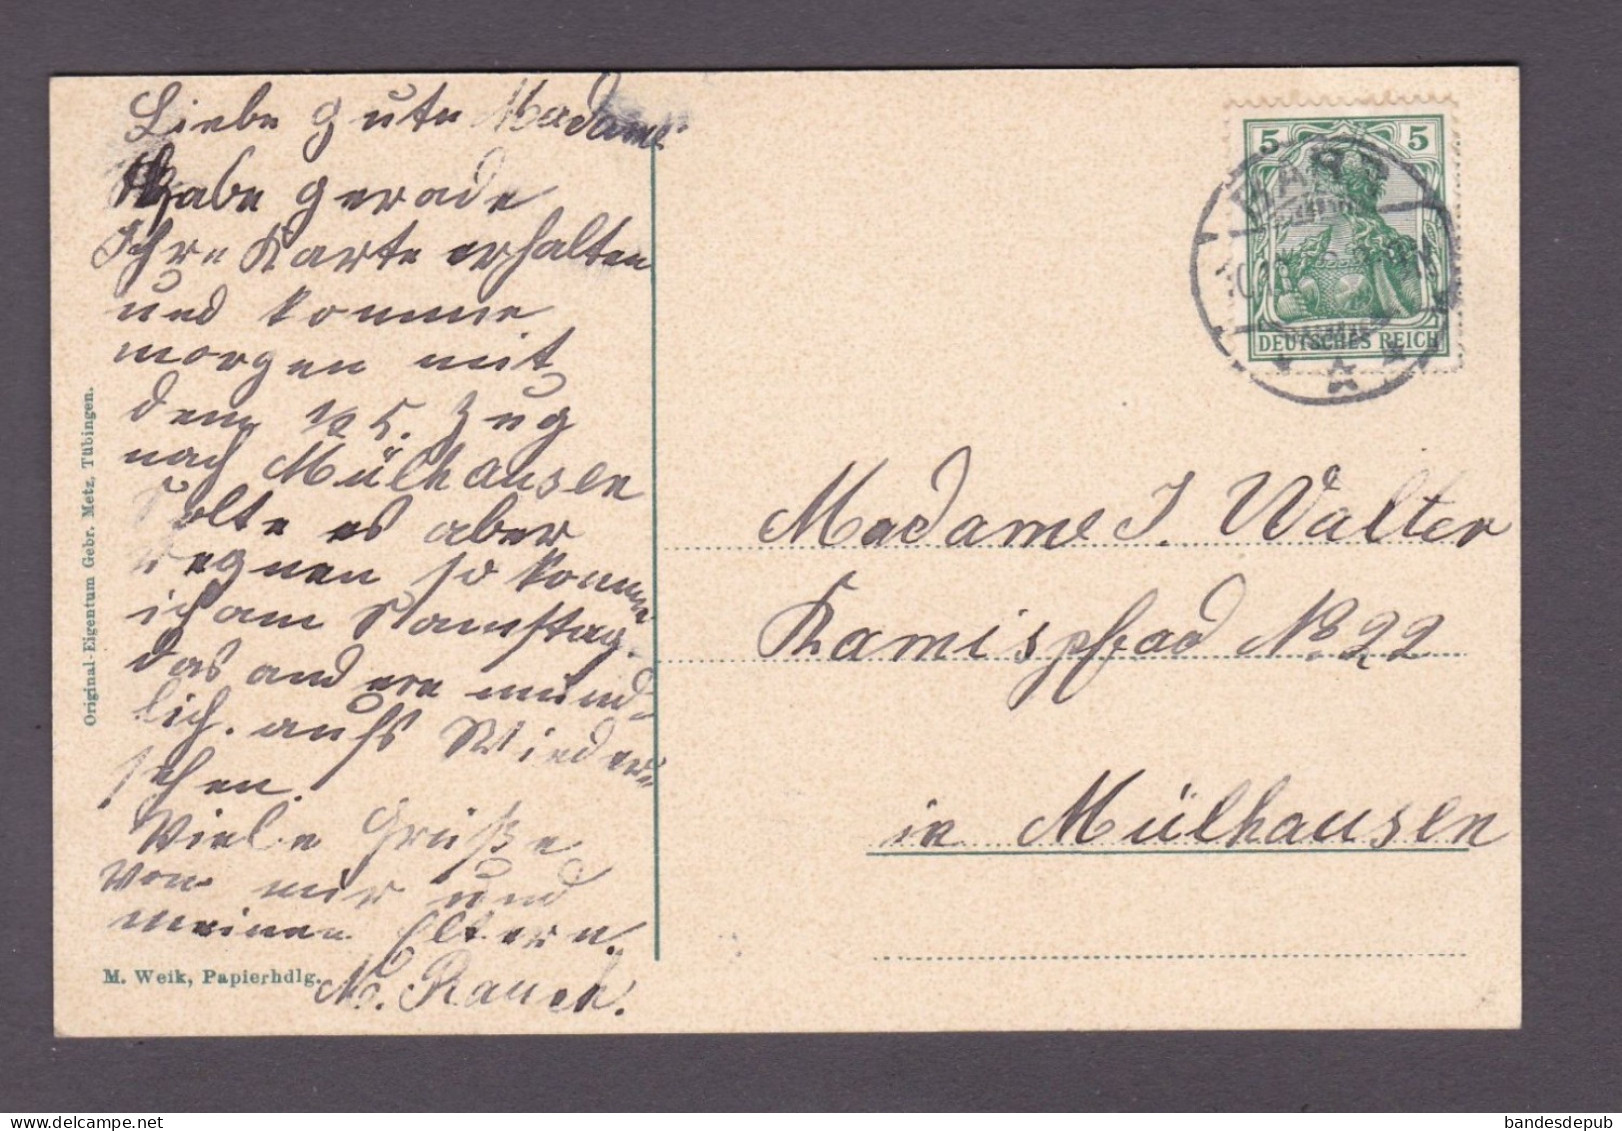 Liebe gute Madame
Habe gerade
Ihre Karte erhalten
und komme
morgen mit
dem ½ 5. Zug
nach Mülhausen
Solte es aber
regnen so komme
ich am Samstag.
das andere münd-
lich. aufs Wieder-
sehen.
Viele Grüße
von mir und
meinen Eltern.
M. Rauch.
M. Weik, Papierhdlg.
Original-Eigentum Gebr. Metz, Tübingen.
5 5
DEUTSCHES REICH
Madame J. Walter
Kamispfad No 22
in Mülhausen
bandesdepub